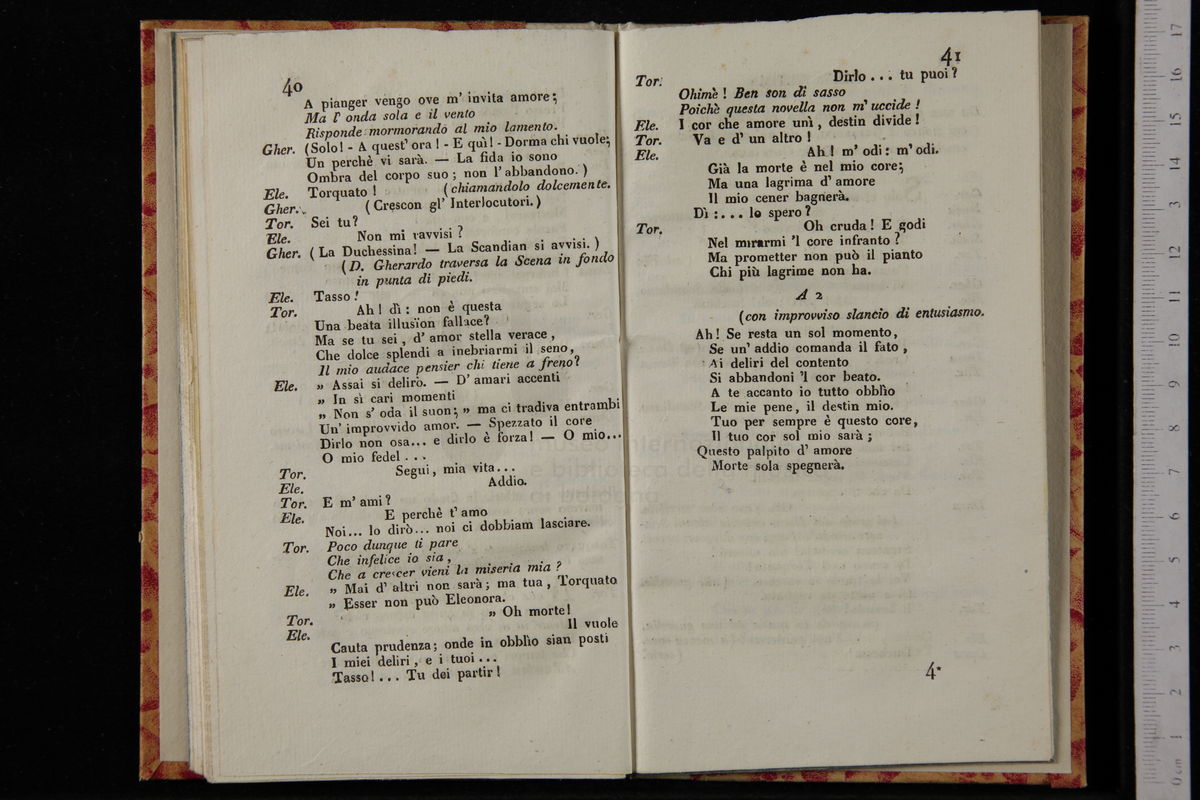 40
A pianger vengo ove m' invita amore;
Ma l' onda sola e il vento
Risponde mormorando al mio lamento.
Gher. (Solo! - A quest' ora! - E quì! - Dorma chi vuole;
Un perchè vi sarà. — La fida io sono
Ombra del corpo suo; non l'abbandono.)
Ele. Torquato! (chiamandolo dolcemente.
Gher. (Crescon gl' Interlocutori.)
Tor. Sei tu?
Ele. Non mi ravvisi?
Gher. (La Duchessina! — La Scandian si avvisi.)
(D. Gherardo traversa la Scena in fondo
in punta di piedi.
Ele. Tasso!
Tor. Ah! dì: non è questa
Una beata illusïon fallace?
Ma se tu sei, d' amor stella verace,
Che dolce splendi a inebriarmi il seno,
Il mio audace pensier chi tiene a freno?
Ele. „ Assai si delirò. — D' amari accenti
„ In sì cari momenti
„ Non s' oda il suon; „ ma ci tradiva entrambi
Un' improvvido amor. — Spezzato il core
Dirlo non osa... e dirlo è forza! — O mio...
O mio fedel...
Tor. Segui, mia vita...
Ele. Addio.
Tor. E m' ami?
Ele. E perchè t' amo
Noi... lo dirò... noi ci dobbiam lasciare.
Tor. Poco dunque ti pare
Che infelice io sia,
Che a crescer vieni la miseria mia?
Ele. „ Mai d' altri non sarà; ma tua, Torquato
„ Esser non può Eleonora.
Tor. „ Oh morte!
Ele. Il vuole
Cauta prudenza; onde in obblìo sian posti
I miei deliri, e i tuoi...
Tasso!... Tu dei partir!
41
Tor. Dirlo... tu puoi?
Ohimè! Ben son di sasso
Poichè questa novella non m' uccide!
Ele. I cor che amore unì, destin divide!
Tor. Va e d' un altro!
Ele. Ah! m' odi: m' odi.
Già la morte è nel mio core;
Ma una lagrima d' amore
Il mio cener bagnerà.
Dì:... lo spero?
Tor. Oh cruda! E godi
Nel mirarmi 'l core infranto?
Ma prometter non può il pianto
Chi più lagrime non ha.
A 2
(con improvviso slancio di entusiasmo.
Ah! Se resta un sol momento,
Se un' addio comanda il fato,
Ai deliri del contento
Si abbandoni 'l cor beato.
A te accanto io tutto obblìo
Le mie pene, il destin mio.
Tuo per sempre è questo core,
Il tuo cor sol mio sarà;
Questo palpito d' amore
Morte sola spegnerà.
4*
0 cm 1 2 3 4 5 6 7 8 9 10 11 12 13 14 15 16 17